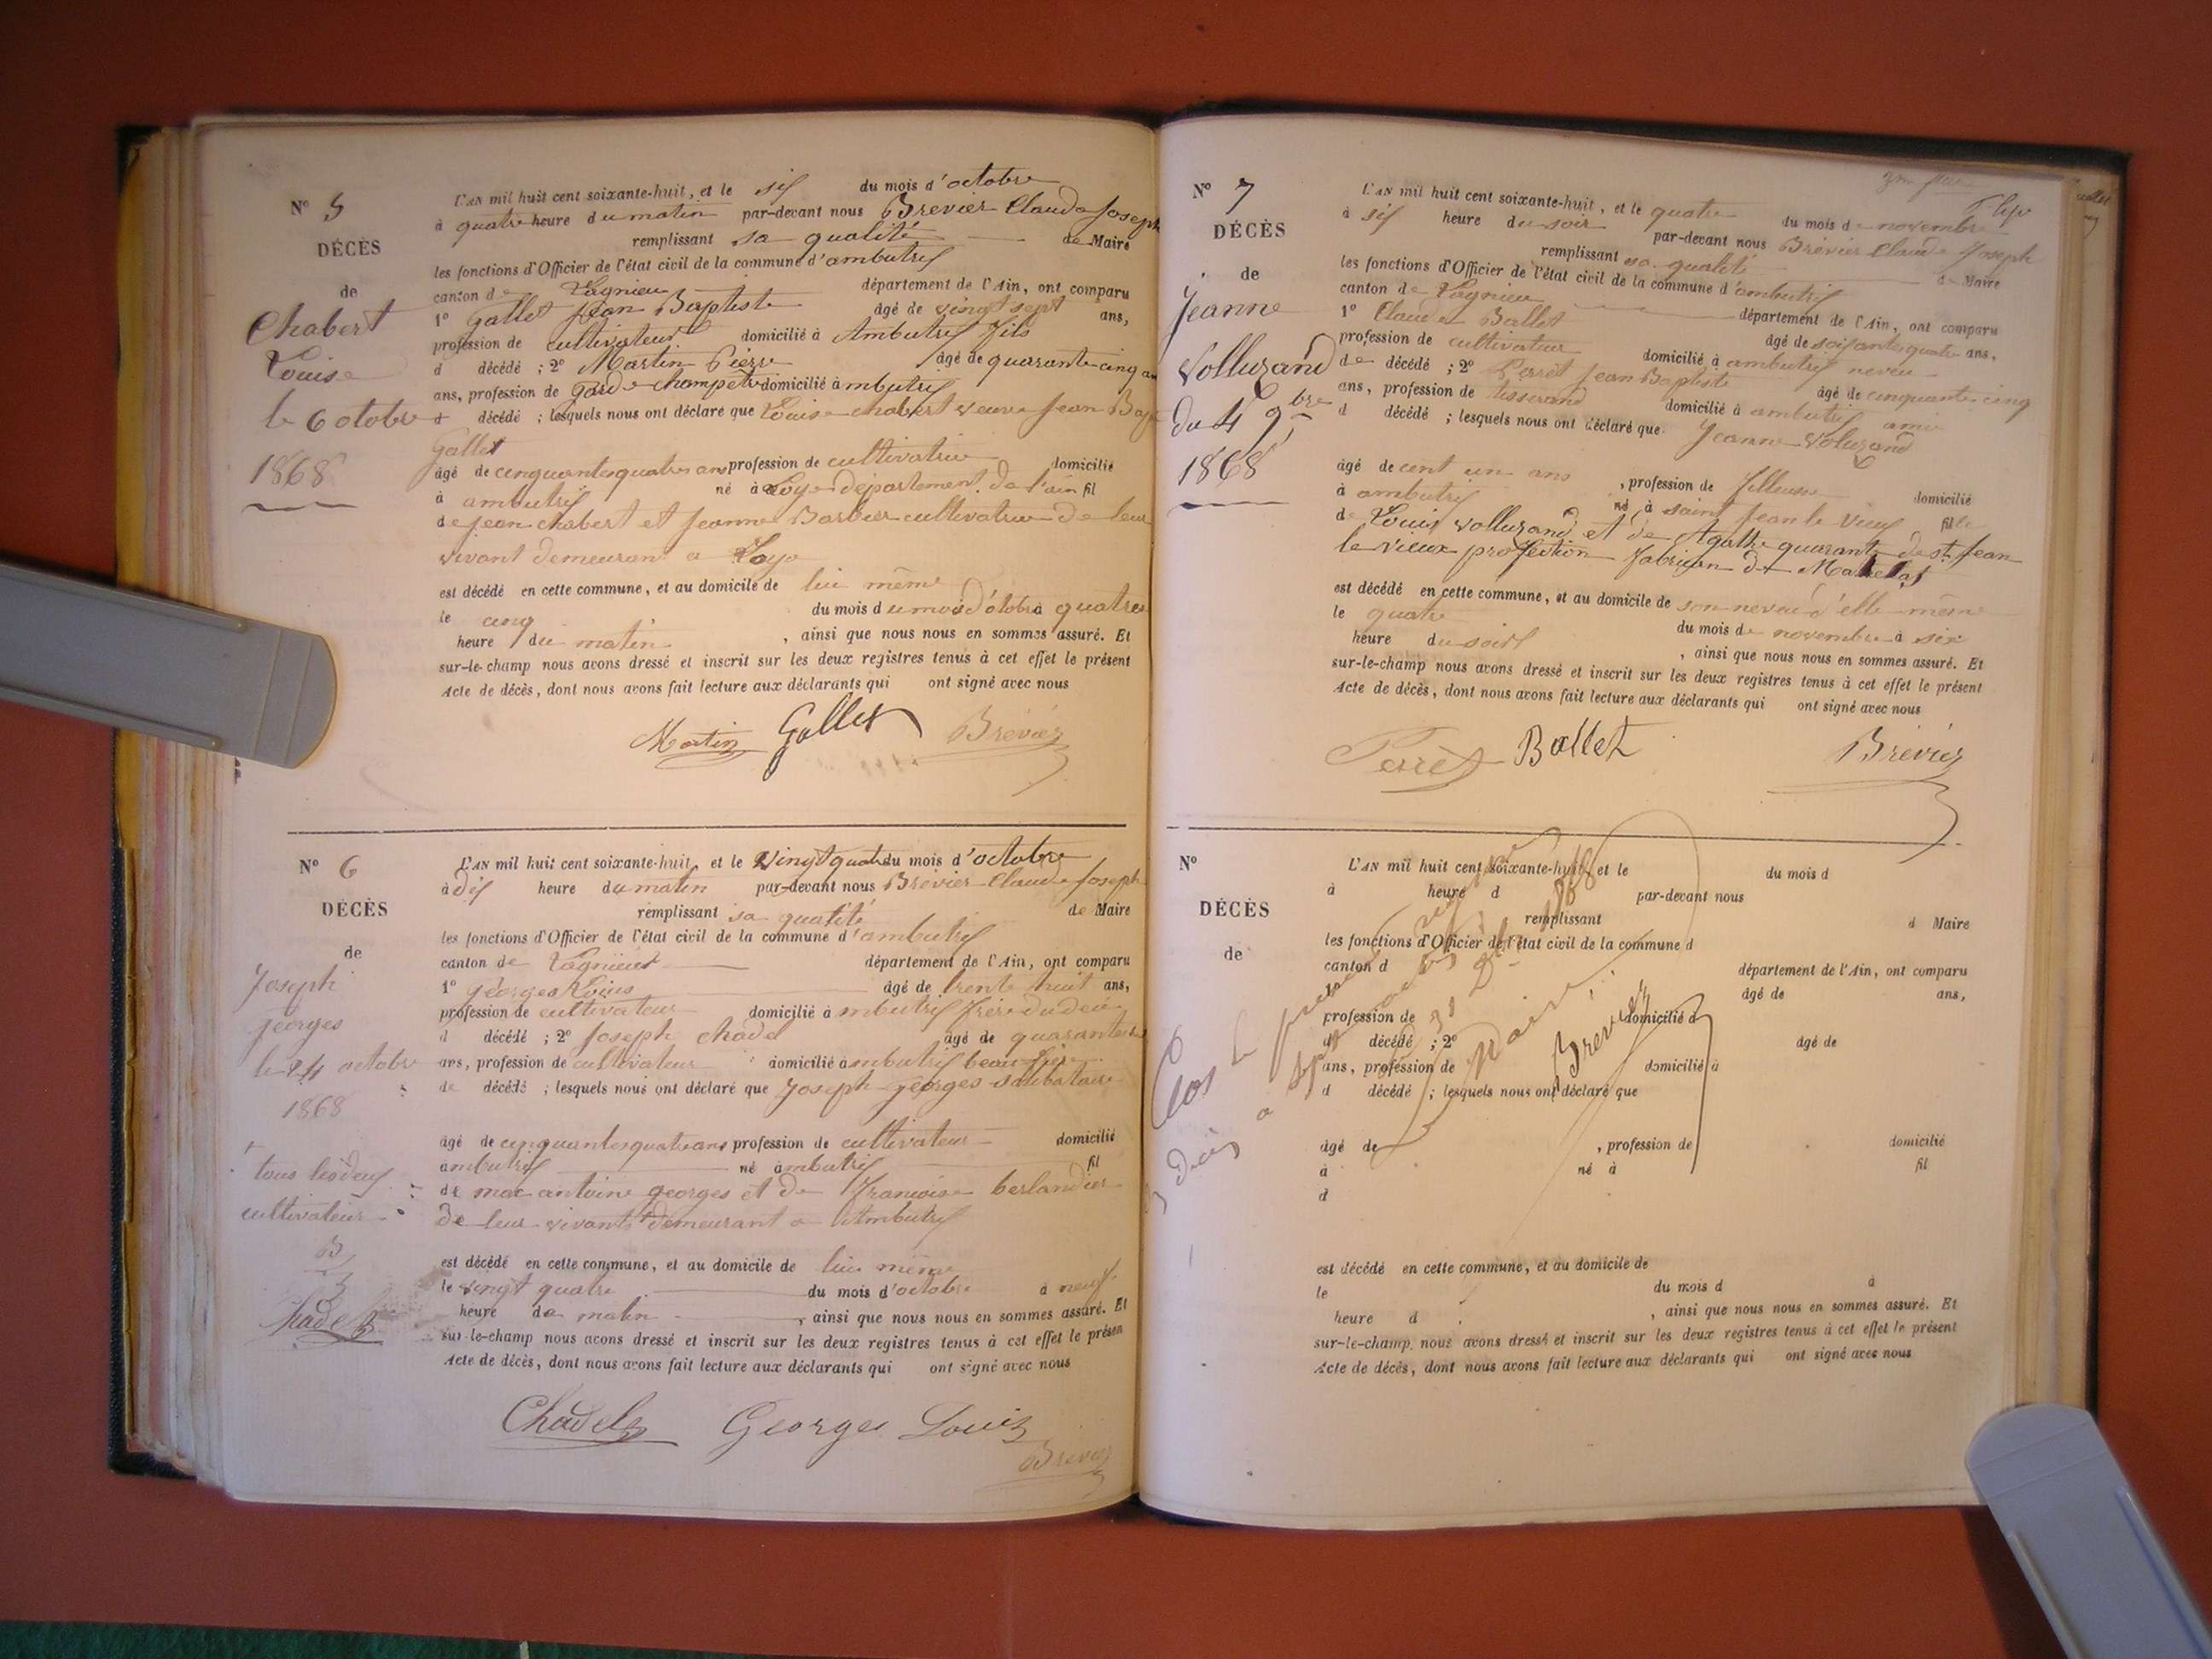 N° 5
DÉCÈS
de
Chabert
Louise
le 6 otobre
1868
L'AN mil huit cent soixante-huit, et le six du mois d'octobre
à quatre heure du matin par-devant nous Brevier Claude Joseph
remplissant sa qualité de Maire
les fonctions d'Officier de l'état civil de la commune d'ambutrix
canton de Lagnieu département de l'Ain, ont comparu
1° Gallet Jean Baptiste âgé de vingt sept ans,
profession de cultivateur domicilié à Ambutrix fils
d décédé ; 2° Martin Pierre âgé de quarante cinq an
ans, profession de garde champetre domicilié à mbutrix
d décédé ; lesquels nous ont déclaré que Louise chabert veuve Jean Bap
Gallet
âgé de cinquantequatre ans profession de cultivatrice domicilié
à ambutrix né à Loye département de l'ain fil
de jean chabert et jeanne Barbier cultivatrice de leur
vivant demeurant a Loye
est décédé en cette commune, et au domicile de lui même
le cinq du mois du mois d'otobre à quatres
heure du matin , ainsi que nous nous en sommes assuré. Et
sur-le-champ nous avons dressé et inscrit sur les deux registres tenus à cet effet le présent
Acte de décès, dont nous avons fait lecture aux déclarants qui ont signé avec nous
Martin Gallet Brévier
N° 6
DÉCÈS
de
Joseph
georges
le 24 octobre
1868
tous les deux
cultivateur
B
Chadel
L'AN mil huit cent soixante-huit, et le vingt quatre du mois d'octobre
à dix heure du matin par-devant nous Brevier Claude Joseph
remplissant sa qualité de Maire
les fonctions d'Officier de l'état civil de la commune d'ambutrix
canton de Lagnieu département de l'Ain, ont comparu
1° géorges Louis âgé de trente huit ans,
profession de cultivateur domicilié à mbutrix frère du
d décédé ; 2° Joseph Chadel âgé de quarante
ans, profession de cultivateur domicilié à mbutrix beau frère
de décédé ; lesquels nous ont déclaré que Joseph georges
âgé de cinquantequatre ans profession de cultivateur domicilié
à mbutrix né à mbutrix fil
de marc antoine georges et de francoise berlandier
de leur vivants demeurant a Ambutrix
est décédé en cette commune, et au domicile de lui même
le vingt quatre du mois d'octobre à neuf
heure de matin , ainsi que nous nous en sommes assuré. Et
sur-le-champ nous avons dressé et inscrit sur les deux registres tenus à cet effet le présen
Acte de décès, dont nous avons fait lecture aux déclarants qui ont signé avec nous
Chadel Georges Louis
Brevier
N° 7
DÉCÈS
de
Jeanne
Volluzand
du 4 9bre
1868
L'AN mil huit cent soixante-huit, et le quatre du mois de novembre
à six heure du soir par-devant nous Brévier Claude Joseph
remplissant sa qualité de Maire
les fonctions d'Officier de l'état civil de la commune d'ambutrix
canton de Lagnieu département de l'Ain, ont comparu
1° Claude Ballet âgé de soixantequatre ans,
profession de cultivateur domicilié à ambutrix neveu
de décédé ; 2° Perret Jean Baptiste âgé de cinquante cinq
ans, profession de tisserand domicilié à ambutrix ami
d décédé ; lesquels nous ont déclaré que Jeanne Voluzand
âgé de cent un ans , profession de filleuse domicilié
à ambutrix né à saint Jean le vieux fille
de Louis volluzand et de Agathe quarante de st Jean
le vieux profession fabrican de Matelas
est décédé en cette commune, et au domicile de son neveu d'elle même
le quatre du mois de novembre à six
heure du soir , ainsi que nous nous en sommes assuré. Et
sur-le-champ nous avons dressé et inscrit sur les deux registres tenus à cet effet le présent
Acte de décès, dont nous avons fait lecture aux déclarants qui ont signé avec nous
Perret Ballet Brévier
N°
DÉCÈS
de
L'AN mil huit cent soixante-huit, et le du mois d
à heure d par-devant nous
remplissant d Maire
les fonctions d'Officier de l'état civil de la commune d
canton d département de l'Ain, ont comparu
âgé de ans,
profession de domicilié à
d décédé ; 2° âgé de
ans, profession de domicilié à
d décédé ; lesquels nous ont déclaré que
âgé de , profession de domicilié
à né à fil
d
est décédé en cette commune, et au domicile de
le du mois d à
heure d , ainsi que nous nous en sommes assuré. Et
sur-le-champ nous avons dressé et inscrit sur les deux registres tenus à cet effet le présent
Acte de décès, dont nous avons fait lecture aux déclarants qui ont signé avec nous
Clos le
1868
Maire
Brevier